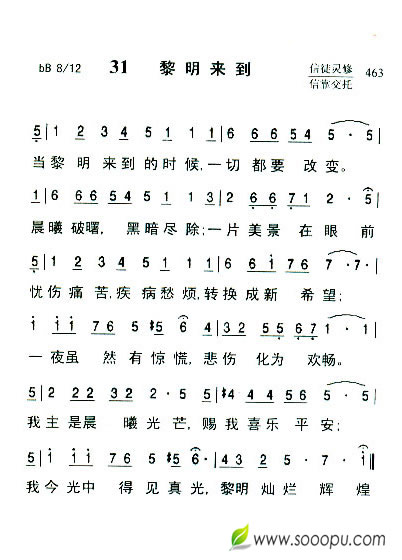 bB 8/12 31 黎明来到 信徒灵修 信靠交托 463
5 | 1 2 3 4 5 1 1 | 6 6 6 5 4 5 · 5 |
当黎明来到的时候,一切都要改变。
1 | 6 6 6 5 4 5 1 1 | 2 6 6 7 1 2 · 5 |
晨曦破曙,黑暗尽除;一片美景在眼前
5 | 1 2 3 4 5 1 1 | 2 1 2 1 7 6 7 · 7 · |
忧伤痛苦,疾病愁烦,转换成新希望;
1 | 1 1 7 6 5 #5 6 4 | 3 3 2 5 6 7 1 · 1 · |
一夜虽然有惊慌,悲伤化为欢畅。
5 | 2 2 2 3 2 2 · 5 | #4 4 4 3 4 5 · 5 · |
我主是晨曦光芒,赐我喜乐平安;
5 | 1 1 7 6 5 #5 6 4 | 3 3 4 3 2 5 · 7 · 1 ‖
我今光中得见真光,黎明灿烂辉煌
www.sooopu.com